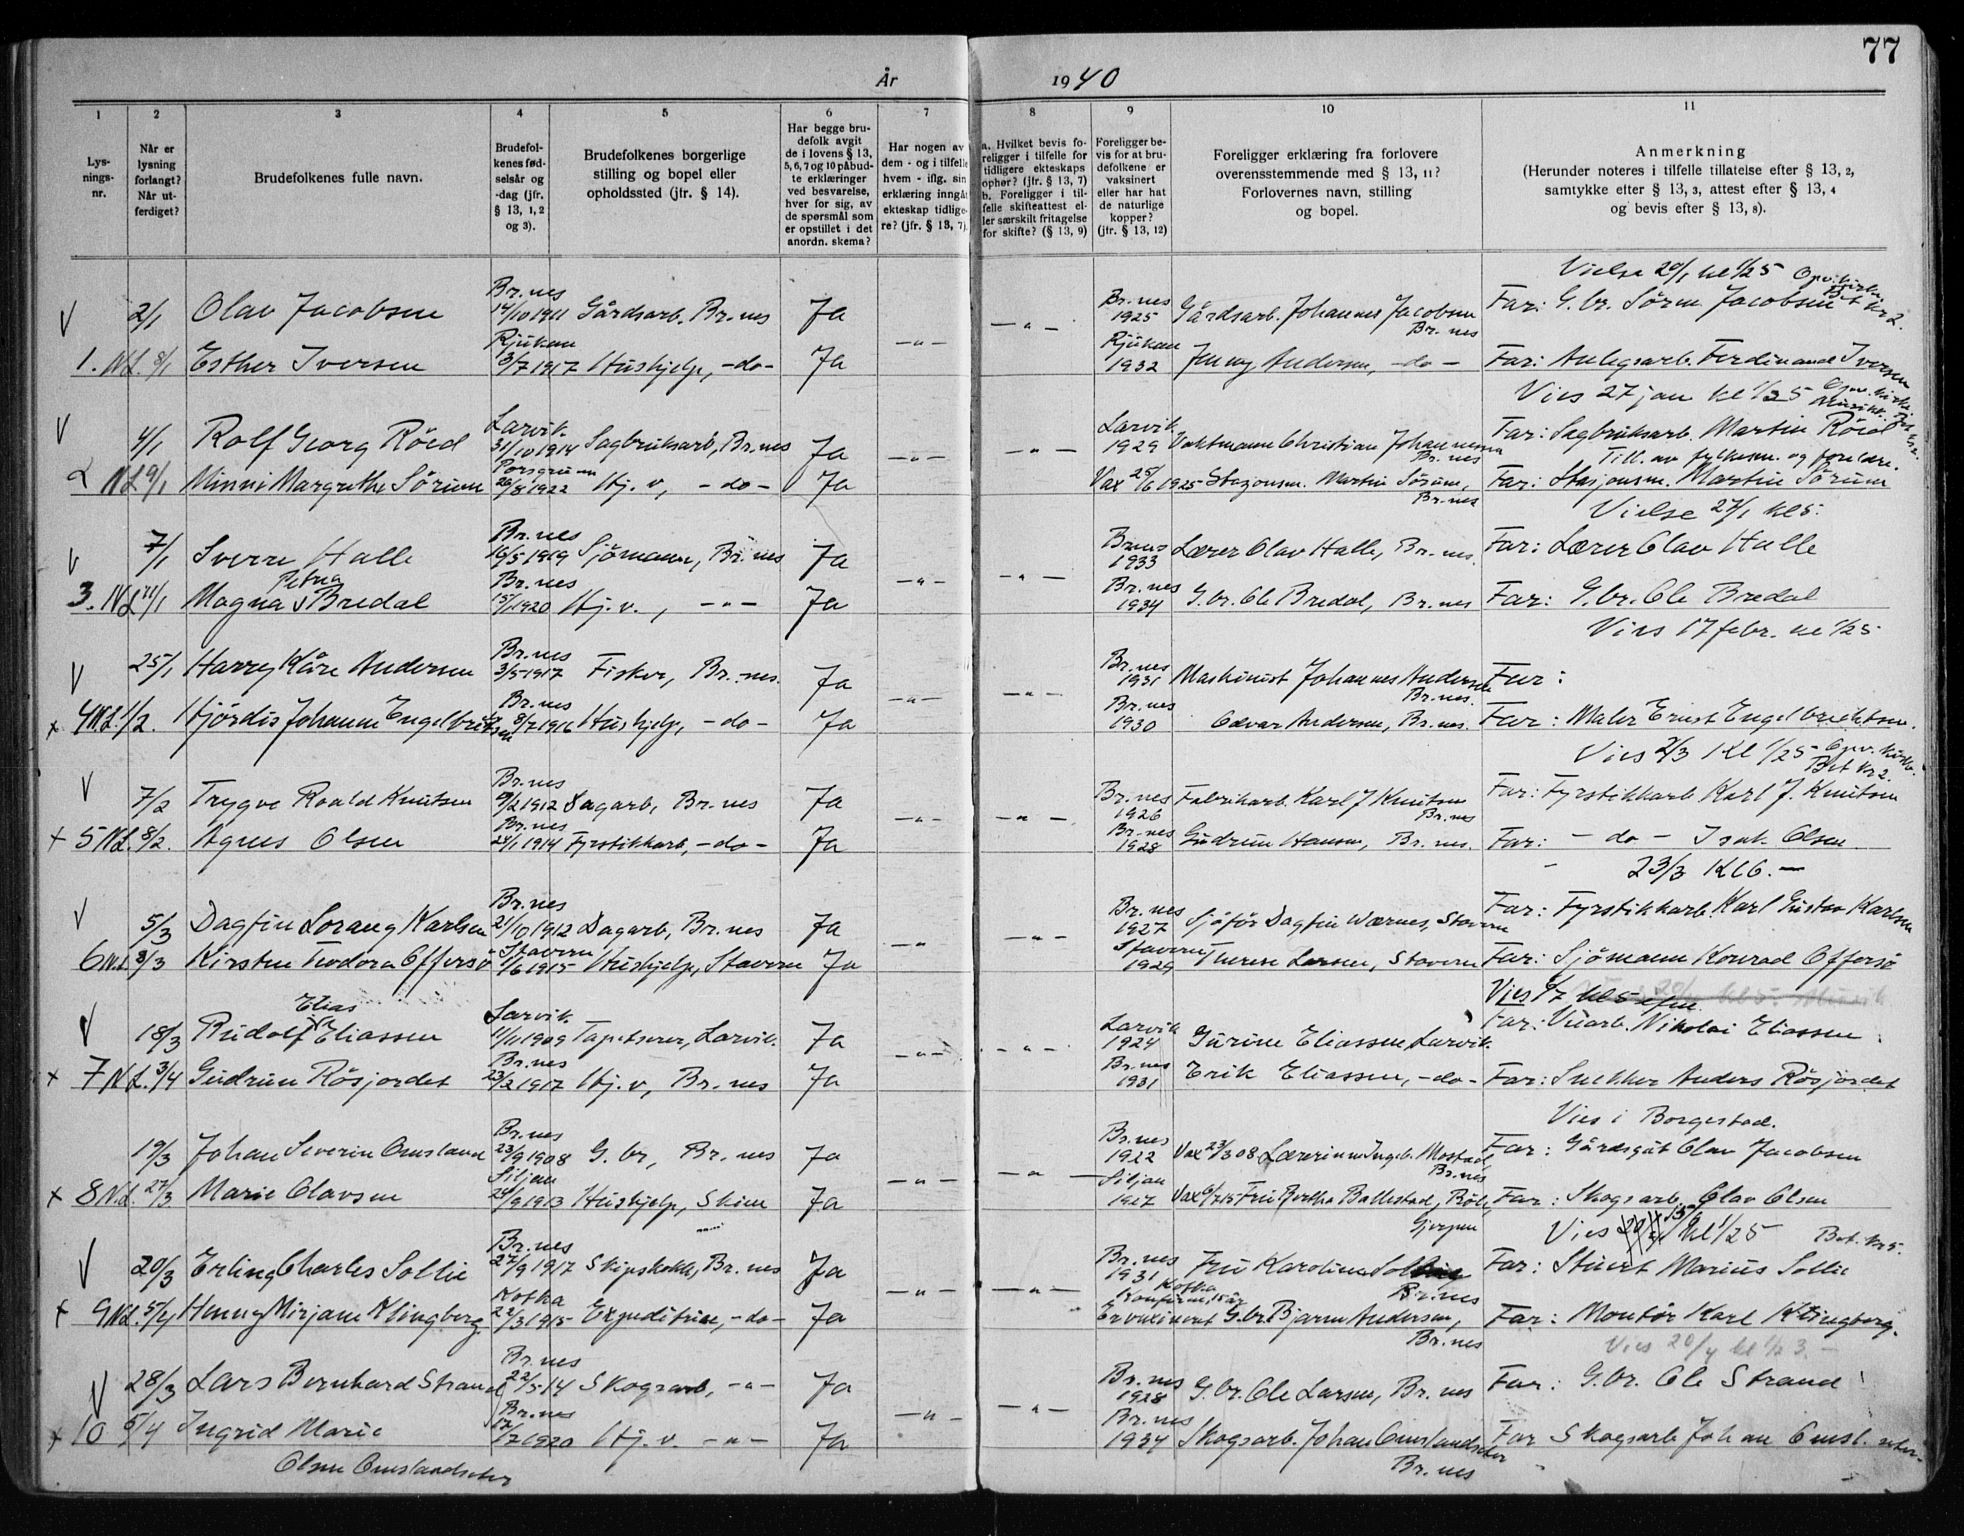 77
År 1940
1 2 3 4 5 6 7 8 9 10 11
Lys-
nings-
nr.
Når er
lysning
forlangt?
Når ut-
ferdiget?
Brudefolkenes fulle navn.
Brudefol-
kenes fød-
selsår og
-dag (jfr.
§ 13, 1, 2
og 3).
Brudefolkenes borgerlige
stilling og bopel eller
opholdssted (jfr. § 14).
Har begge bru-
defolk avgit
de i lovens § 13,
5, 6, 7 og 10 påbud-
te erklæringer
ved besvarelse,
hver for sig, av
de spørsmål som
er opstillet i det
anordn. skema?
Har nogen av
dem - og i tilfelle
hvem - iflg. sin
erklæring inngått
ekteskap tidlige-
re? (jfr. § 13, 7)
a. Hvilket bevis fo-
religger i tilfelle for
tidligere ekteskaps
ophør? (jfr. § 13, 7)
b. Foreligger i til-
felle skifteattest el-
ler særskilt fritagelse
for skifte? (§ 13, 9)
Foreligger be-
vis for at bru-
defolkene er
vaksinert
eller har hat
de naturlige
kopper?
(jfr. § 13, 12)
Foreligger erklæring fra forlovere
overensstemmende med § 13, 11?
Forlovernes navn, stilling
og bopel.
Anmerkning
(Herunder noteres i tilfelle tillatelse efter § 13, 2,
samtykke efter § 13, 3, attest efter § 13, 4
og bevis efter § 13, 8).
Vielse 20/1 kl 1/2 5
V 2/1 Olav Jacobsen Br.nes 14/10 1911 Gårdsarb. Br.nes Ja Br.nes 1925 Gårdsarb. Johannes Jacobsen Br.nes Far: G.br. Sørm. Jacobsen
1. N.L. 8/1 Esther Iversen Rjukan 3/7 1917 Hushjelp, -do- Ja -"- -"- Rjukan 1932 Jenny Andersen, -do- Far: Anlegsarb. Ferdinand Iversen
Vies 27 jan kl 1/2 5
V 4/1 Rolf Georg Röed Larvik 31/10 1914 Sagbruksarb, Br.nes Ja Larvik 1929 Vaktmann Christian Johannesen Br.nes Far: Sagbruksarb. Martin Röed
Till. av fylkesm. og foreldre.
2 N.L. 9/1 Minni Margrethe Sörum Porsgrunn 26/8 1922 Hj. v, -do- Ja -"- Vax 25/6 1925 Stasjonsm. Martin Sörum, Br.nes Far: Stasjonsm. Martin Sörum
Vielse 27/1 kl 5.
V 7/1 Sverre Halle Br.nes 16/5 1919 Sjömann, Br.nes Ja Br.nes 1933 Lærer Olav Halle, Br.nes. Far: Lærer Olav Halle
3. N.L. 11/1 Magna Petra Bredal Br.nes 15/1 1920 Hj.v., -"- Ja -"- -"- Br.nes 1934 G.br. Ole Bredal, Br.nes Far: G.br. Ole Bredal
Vies 17 febr. kl 1/2 5
V 25/1 Harry Kåre Andersen Br.nes 3/5 1917 Fisker, Br.nes. Ja Br.nes 1931 Maskinist Johannes Andersen Br.nes. Far:
x 4 N.L. 1/2. Hjördis Johanne Engelbriktsen Br.nes 8/7 1916 Hushjelp, -do- Ja -"- -"- Br.nes 1930 Andersen, Br.nes. Far: Maler Ernst Engelbrechtsen.
Vies 2/3 Kl 1/2 5 Opv. kirke.
Bet kr 2.
V 7/2 Trygve Roald Knutsen Br.nes 9/2 1912 Dagarb, Br.nes Ja Br.nes 1926 Fabrikarb. Karl J Knutsen Br.nes Far: Fyrstikkarb Karl J. Knutsen
+ 5 N.L. 8/2. Agnes Olsen Br.nes 24/1 1914 Fyrstikkarb, -do- Ja -"- -"- Br.nes 1928 Gudrun Hansen, Br.nes. Far: -do- Isak Olsen
23/3 Kl 6. -
V 5/3 Dagfin Lorang Karlsen Br.nes 21/10 1912 Dagarb, Br.nes Ja Br.nes 1927 Sjåför Dagfin Wærnes, Stavern Far: Fyrstikkarb Karl Gustav Karlsen
6 N.L. 8/3 Kirsten Teodora Offersö Stavern 1/6 1915 Hushjelp, Stavern Ja -"- -"- Stavern 1929 Therese Larsen, Stavern Far: Sjömann Konrad Offersö
Vies 6/7 kl 5
V 18/3 Rudolf Elias Eliassen Larvik 11/11 1909 Tapetserer, Larvik. Ja Larvik 1924 Gurine Eliassen Larvik. Far: Nikolai Eliassen
x 7 N.L. 3/4 Gudrun Rösjordet Br.nes 23/2 1917 Hj.v, Br.nes Ja -"- -"- Br.nes 1931 Erik Eliassen, -do- Far: Snekker Anders Rösjordet
Vies i Borgestad.
19/3 Johan Severin Omsland Br.nes 23/9 1908 G.br, Br.nes Ja Br.nes 1922 Vax 23/3 08 Lærerinne Ingeb. Mostad, Br.nes Far: Gårdsgut Olav Jacobsen
x 8 N.L. 27/3. Marie Olavsen Siljan 24/9 1913 Hushjelp, Skien Ja -"- -"- Siljan 1927 Vax 6/7 15 Fru Bertha Ballestad, Gjerpen Far: Skogsarb Olav Olsen
Vies 15/6 kl 1/2 5 Bet. kr 5.
V 20/3 Erling Charles Sollie Br.nes 27/9 1917 Skipskokk, Br.nes Ja Br.nes 1931 Fru Karoline Br.nes Far: Stuert Marius Sollie
x 9 N.L. 5/4 Henny Mirjam Klingberg Kotka 22/3 1915 Expeditrise, -do- Ja -"- -"- Kotka Konfirm. 15 år G.br. Bjarne Andersen, Br.nes Far: Montör Karl Klingberg.
Vies 20/4 kl 1/2 3. -
V 28/3 Lars Bernhard Strand Br.nes 22/5-14 Skogsarb, -"- Ja Br.nes 1928 G.br. Ole Larsen, Br.nes Far: G.br. Ole Strand
x 10 5/4 Ingrid Marie Br.nes 17/7 1920 Hj.v. -"- Ja -"- -"- Br.nes 1934 Skogsarb. Johan Omslandseter Br.nes Far Skogsarb Johan Omsl.seter.
Olsen Omslandseter